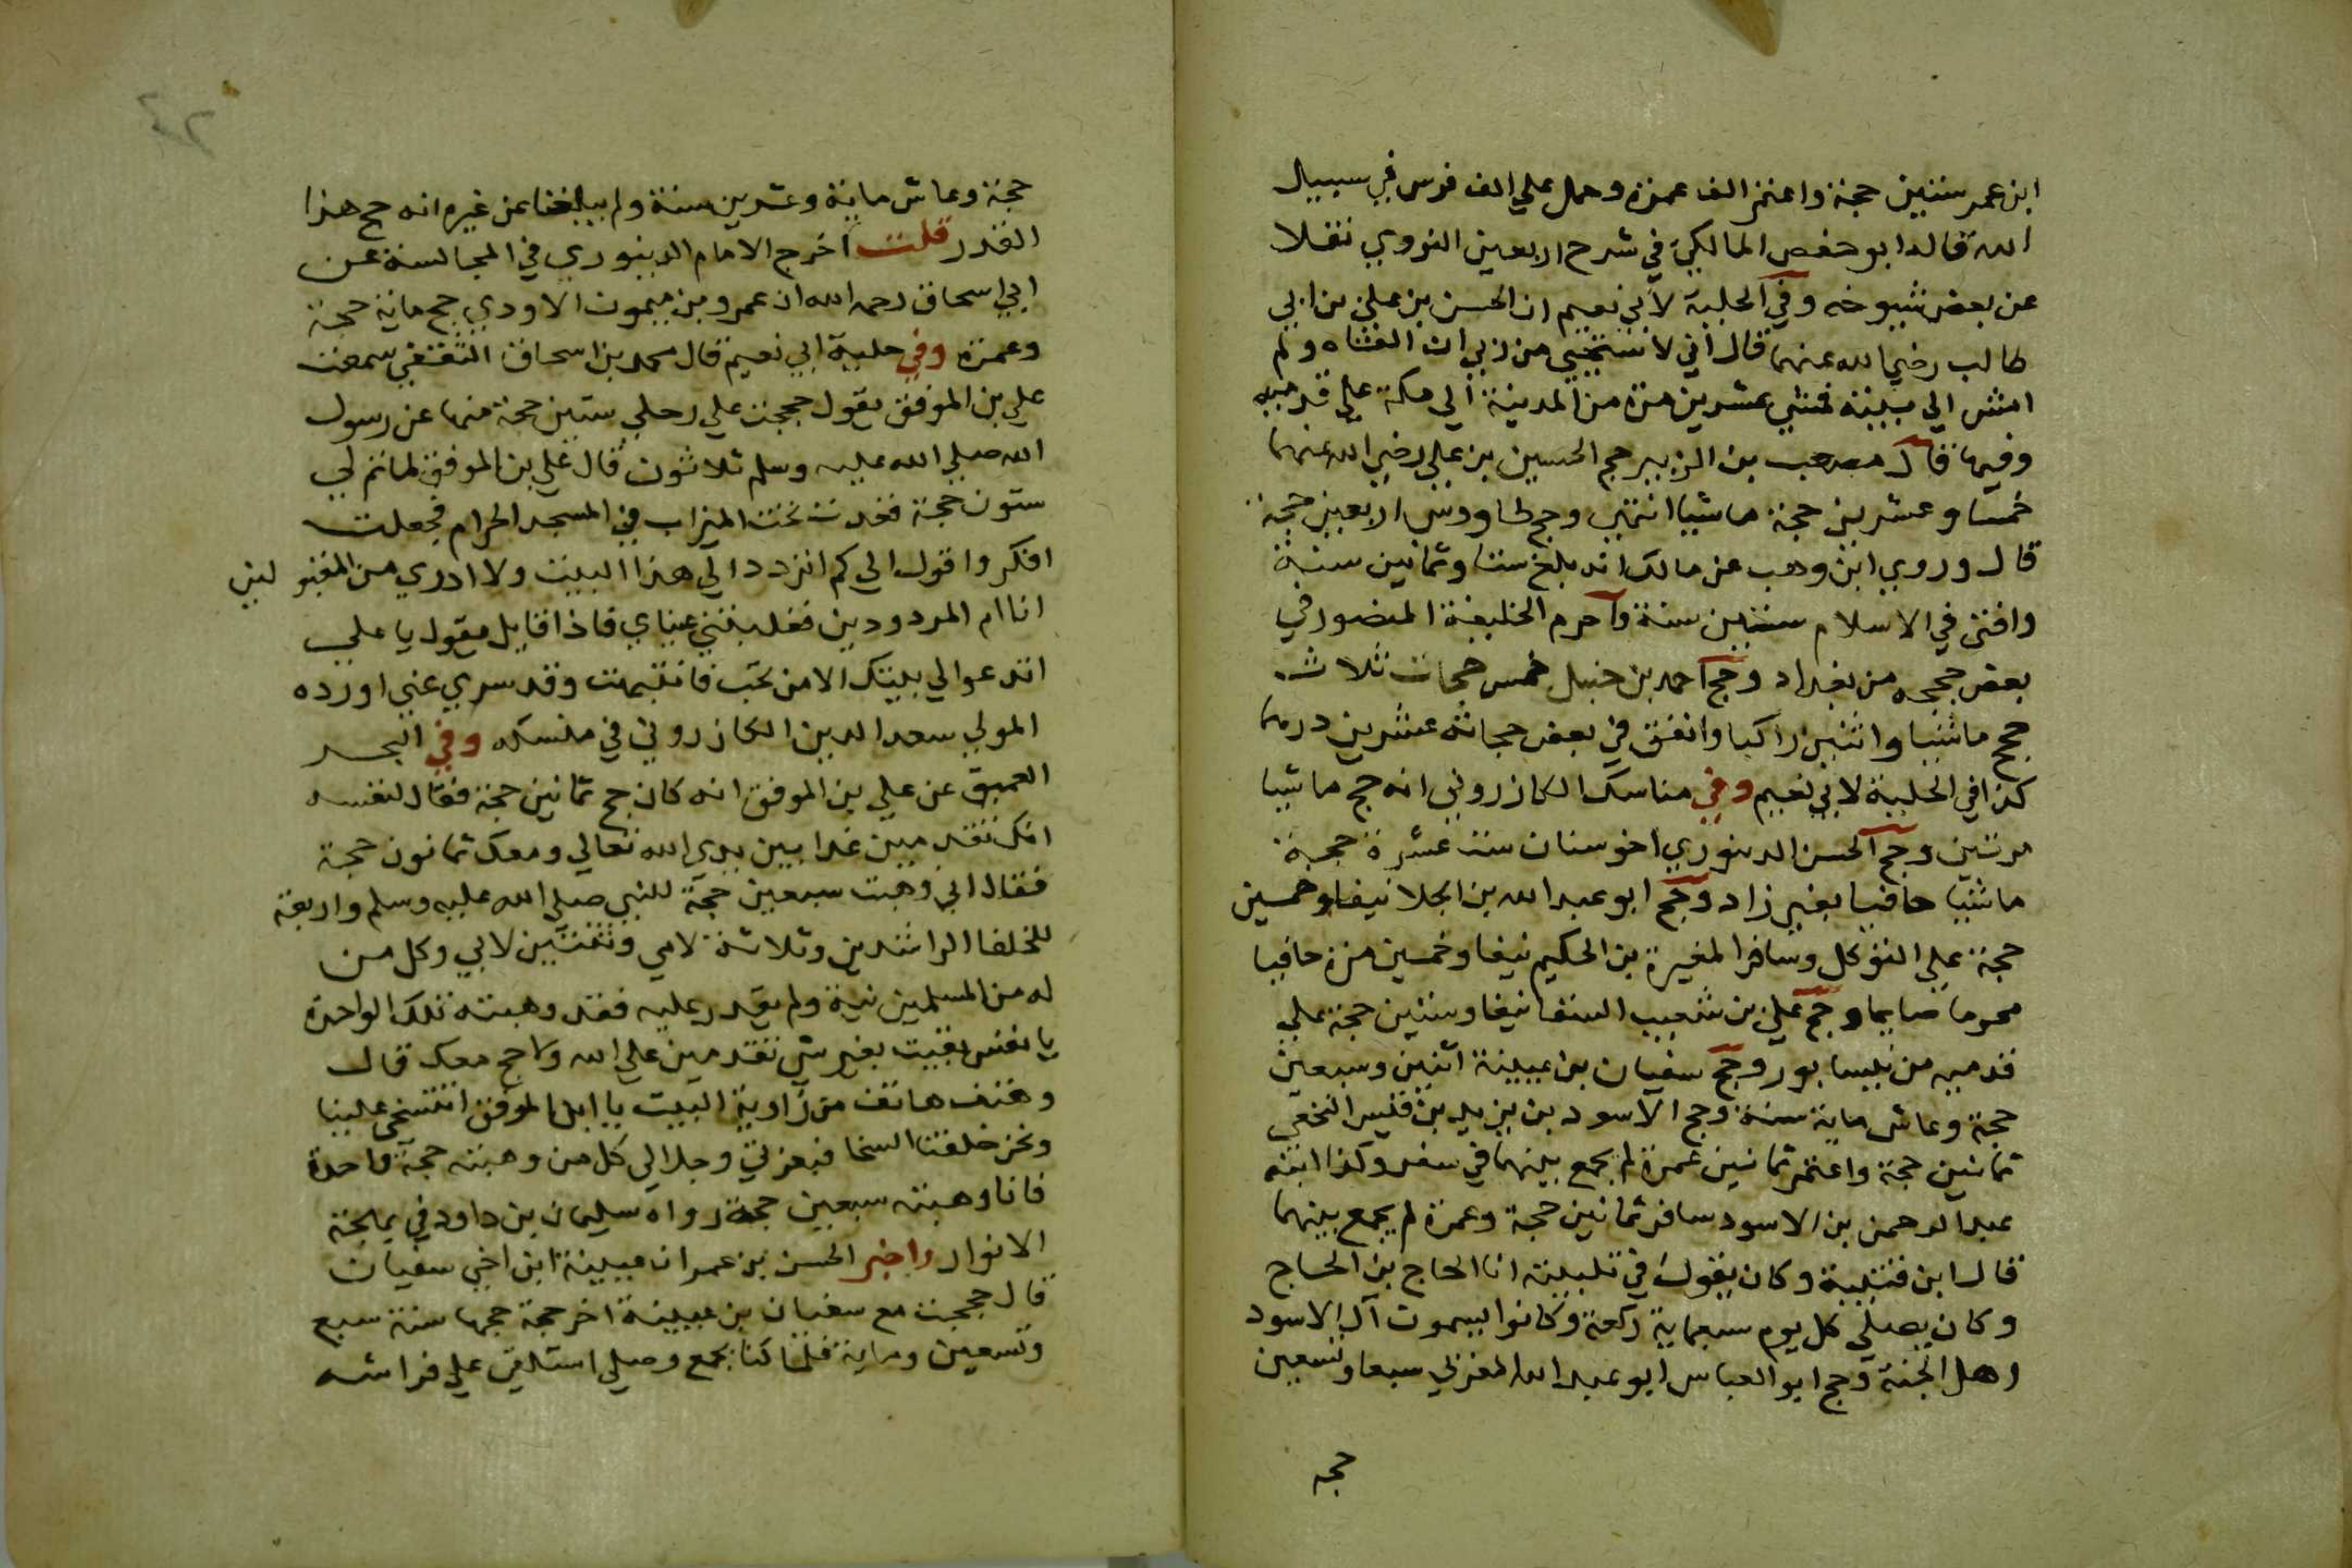 ابن عمر ستين حجة واعتمر الف عمرة وحمل علي الف فرس في سبيل
الله قاله ابو حفص المالكي في شرح اربعين النووي نقلا
عن بعض شيوخه وفي الحلية لابي نعيم ان الحسن بن علي بن ابي
طالب رضي الله عنهما قال اني لاستحيي من ربي ان القاه ولم
امش الي بيته فمشي عشرين مرة من المدينة الي مكة علي قدميه
وفيها قال مصعب بن الزبير حج الحسين بن علي رضي الله عنهما
خمسا وعشرين حجة ماشيا انتهي وحج طاووس اربعين حجة
قال وروي ابن وهب عن مالك انه بلغ ستا وثمانين سنة
وافتي في الاسلام ستين سنة واحرم الخليفة المنصور في
بعض حججه من بغداد وحج احمد بن حنبل خمس حجات ثلاث
حجج ماشيا واثنين راكبا وانفق في بعض حجاته عشرين درهما
كذا في الحلية لابي نعيم وفي مناسك الكازروني انه حج ماشيا
مرتين وحج الحسن الدينوري اخو سنان ست عشرة حجة
ماشيا حافيا بغير زاد وحج ابو عبد الله بن الجلا نيفا وخمسين
حجة علي التوكل وسافر المغيرة بن الحكيم نيفا وخمسين مرة حافيا
محرما صايما وحج علي بن شعيب السقا نيفا وستين حجة علي
قدميه من نيسابور وحج سفيان بن عيينة اثنين وسبعين
حجة وعاش ماية سنة وحج الاسود بن يزيد بن قيس النخعي
ثمانين حجة واعتمر ثمانين عمرة لم يجمع بينهما في سفر وكذا ابنه
عبد الرحمن بن الاسود سافر ثمانين حجة وعمرة لم يجمع بينهما
قال ابن قتيبة وكان يقول في تلبيته انا الحاج بن الحاج
وكان يصلي كل يوم سبعماية ركعة وكانوا يسموت آل الاسود
اهل الجنة وحج ابو العباس ابو عبد الله المغربي سبعا وتسعين
حجه
٤٢
حجة وعاش ماية وعشرين سنة ولم يبلغنا عن غيره انه حج هذا
القدر قلت اخرج الامام الدينوري في المجالسة عن
ابي اسحاق رحمه الله ان عمرو بن ميمون الاودي حج ماية حجة
وعمرة وفي حلية ابي نعيم قال محمد بن اسحاق الثقفي سمعت
علي بن الموفق يقول حججت علي رحلي ستين حجة منها عن رسول
الله صلي الله عليه وسلم ثلاثون قال علي بن الموفق لما تم لي
ستون حجة فقدت تحت الميزاب في المسجد الحرام فجعلت
افكر واقول الي كم اتردد الي هذا البيت ولا ادري من المقبولين
انا ام المردودين فغلبتني عيناي فاذا قايل يقول يا علي
اتدعوا الي بيتك الا من تحب فانتبهت وقد سري عني اورده
المولي سعد الدين الكازروني في منسكه وفي البحر
العميق عن علي بن الموفق انه كان حج ثمانين حجة فقال لنفسه
انك تقدمين غدا بين يدي الله تعالي ومعك ثمانون حجة
فقال اني وهبت سبعين حجة للنبي صلي الله عليه وسلم واربعة
للخلفا الراشدين وثلاثة لامي وثنتين لابي وكل من
له من المسلمين نية ولم يقدر عليه فقد وهبته تلك الواحدة
يا نفس بقيت بغير شي تقدمين علي الله ولا حج معك قال
وهتف هاتف من زاوية البيت يا ابن الموفق اتتسخي علينا
ونحن خلقنا السخا فبعزتي وجلالي كل من وهبته حجة واحدة
فانا وهبته سبعين حجة رواه سليمان بن داود في بهجة
الانوار واخبر الحسن بن عمران عيينة ابن اخي سفيان
قال حججت مع سفيان بن عيينة اخر حجة حجها سنة سبع
وتسعين وماية فلما كنا بجمع وصلي استلقي علي فراشه